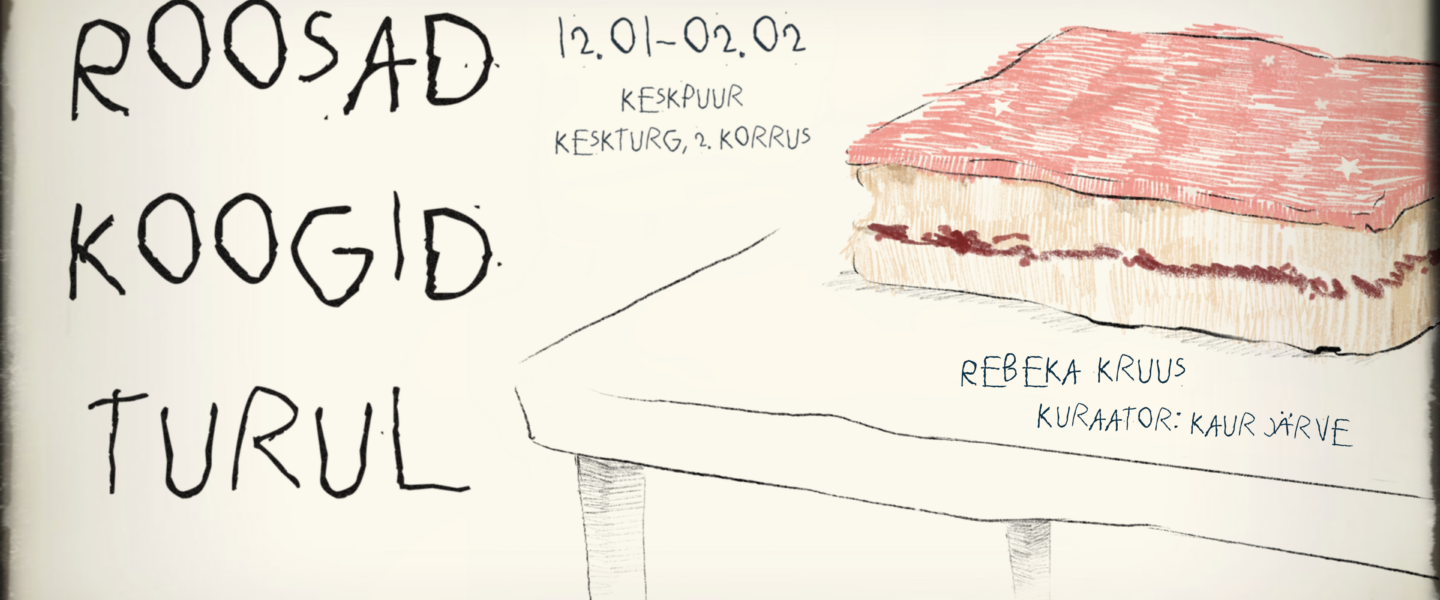 ROOSAD
KOOGID
TURUL
12.01-02.02
KESKPUUR
KESKTURG, 2. KORRUS
REBEKA KRUUS
KURAATOR: KAUR JÄRVE